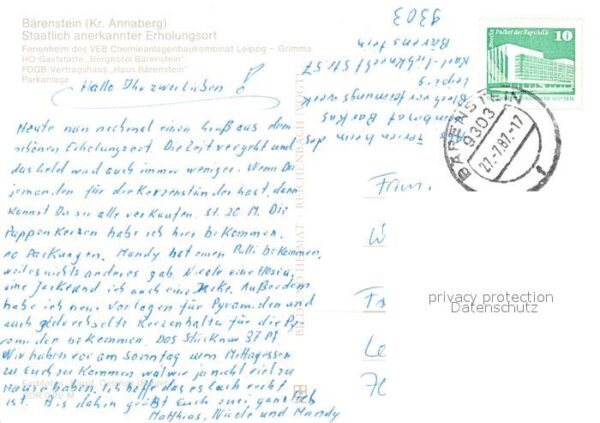 Bärenstein (Kr. Annaberg)
Staatlich anerkannter Erholungsort
Ferienheim des VEB Chemieanlagenbaukombinat Leipzig – Grimma
HO-Gaststätte „Berghotel Bärenstein"
FDGB-Vertragshaus „Haus Bärenstein"
Parkanlage
Hallo Ihr zwei Lieben!
Heute nun nochmal einen Gruß aus dem
schönen Erholungsort. Die Zeit vergeht und
das Geld wird auch immer weniger. Wenn Du
jemanden für die Kerzenständer hast, dann
kannst Du sie alle verkaufen. St. 20 M. Die
Puppenkerzen habe ich hier bekommen.
10 Packungen. Mandy hat einen Pulli bekommen,
weil es nichts anderes gab Nicole eine Hose u.
eine Jacke und ich auch eine Jacke. Außerdem
habe ich neue Vorlagen für Pyramiden und
auch gedrechselte Kerzenhalter für die Py-
ramiden bekommen. Das Stück nur 37 Pf.
Wir haben vor am Sonntag zum Mittagessen
zu Euch zu kommen weil wir ja nicht viel zu
Hause haben. Ich hoffe das es Euch recht
ist. Bis dahin grüßt Euch zwei ganz lieb
Matthias, Nicole und Mandy
BILD UND HEIMAT · REICHENBACH (VOGTL)
DDR 0,20 M
Ferienheim des
Kombinat
Leipzig
Karl-Liebknecht Str 57
Bärenstein
9303
Berlin Palast der Republik
10
BÄRENSTEIN
9303
27.-7.87.-17
Fam.
W
Le
privacy protection
Datenschutz